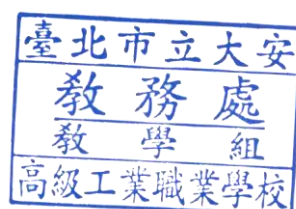 臺北市立大安
教務處
教學組
高級工業職業學校